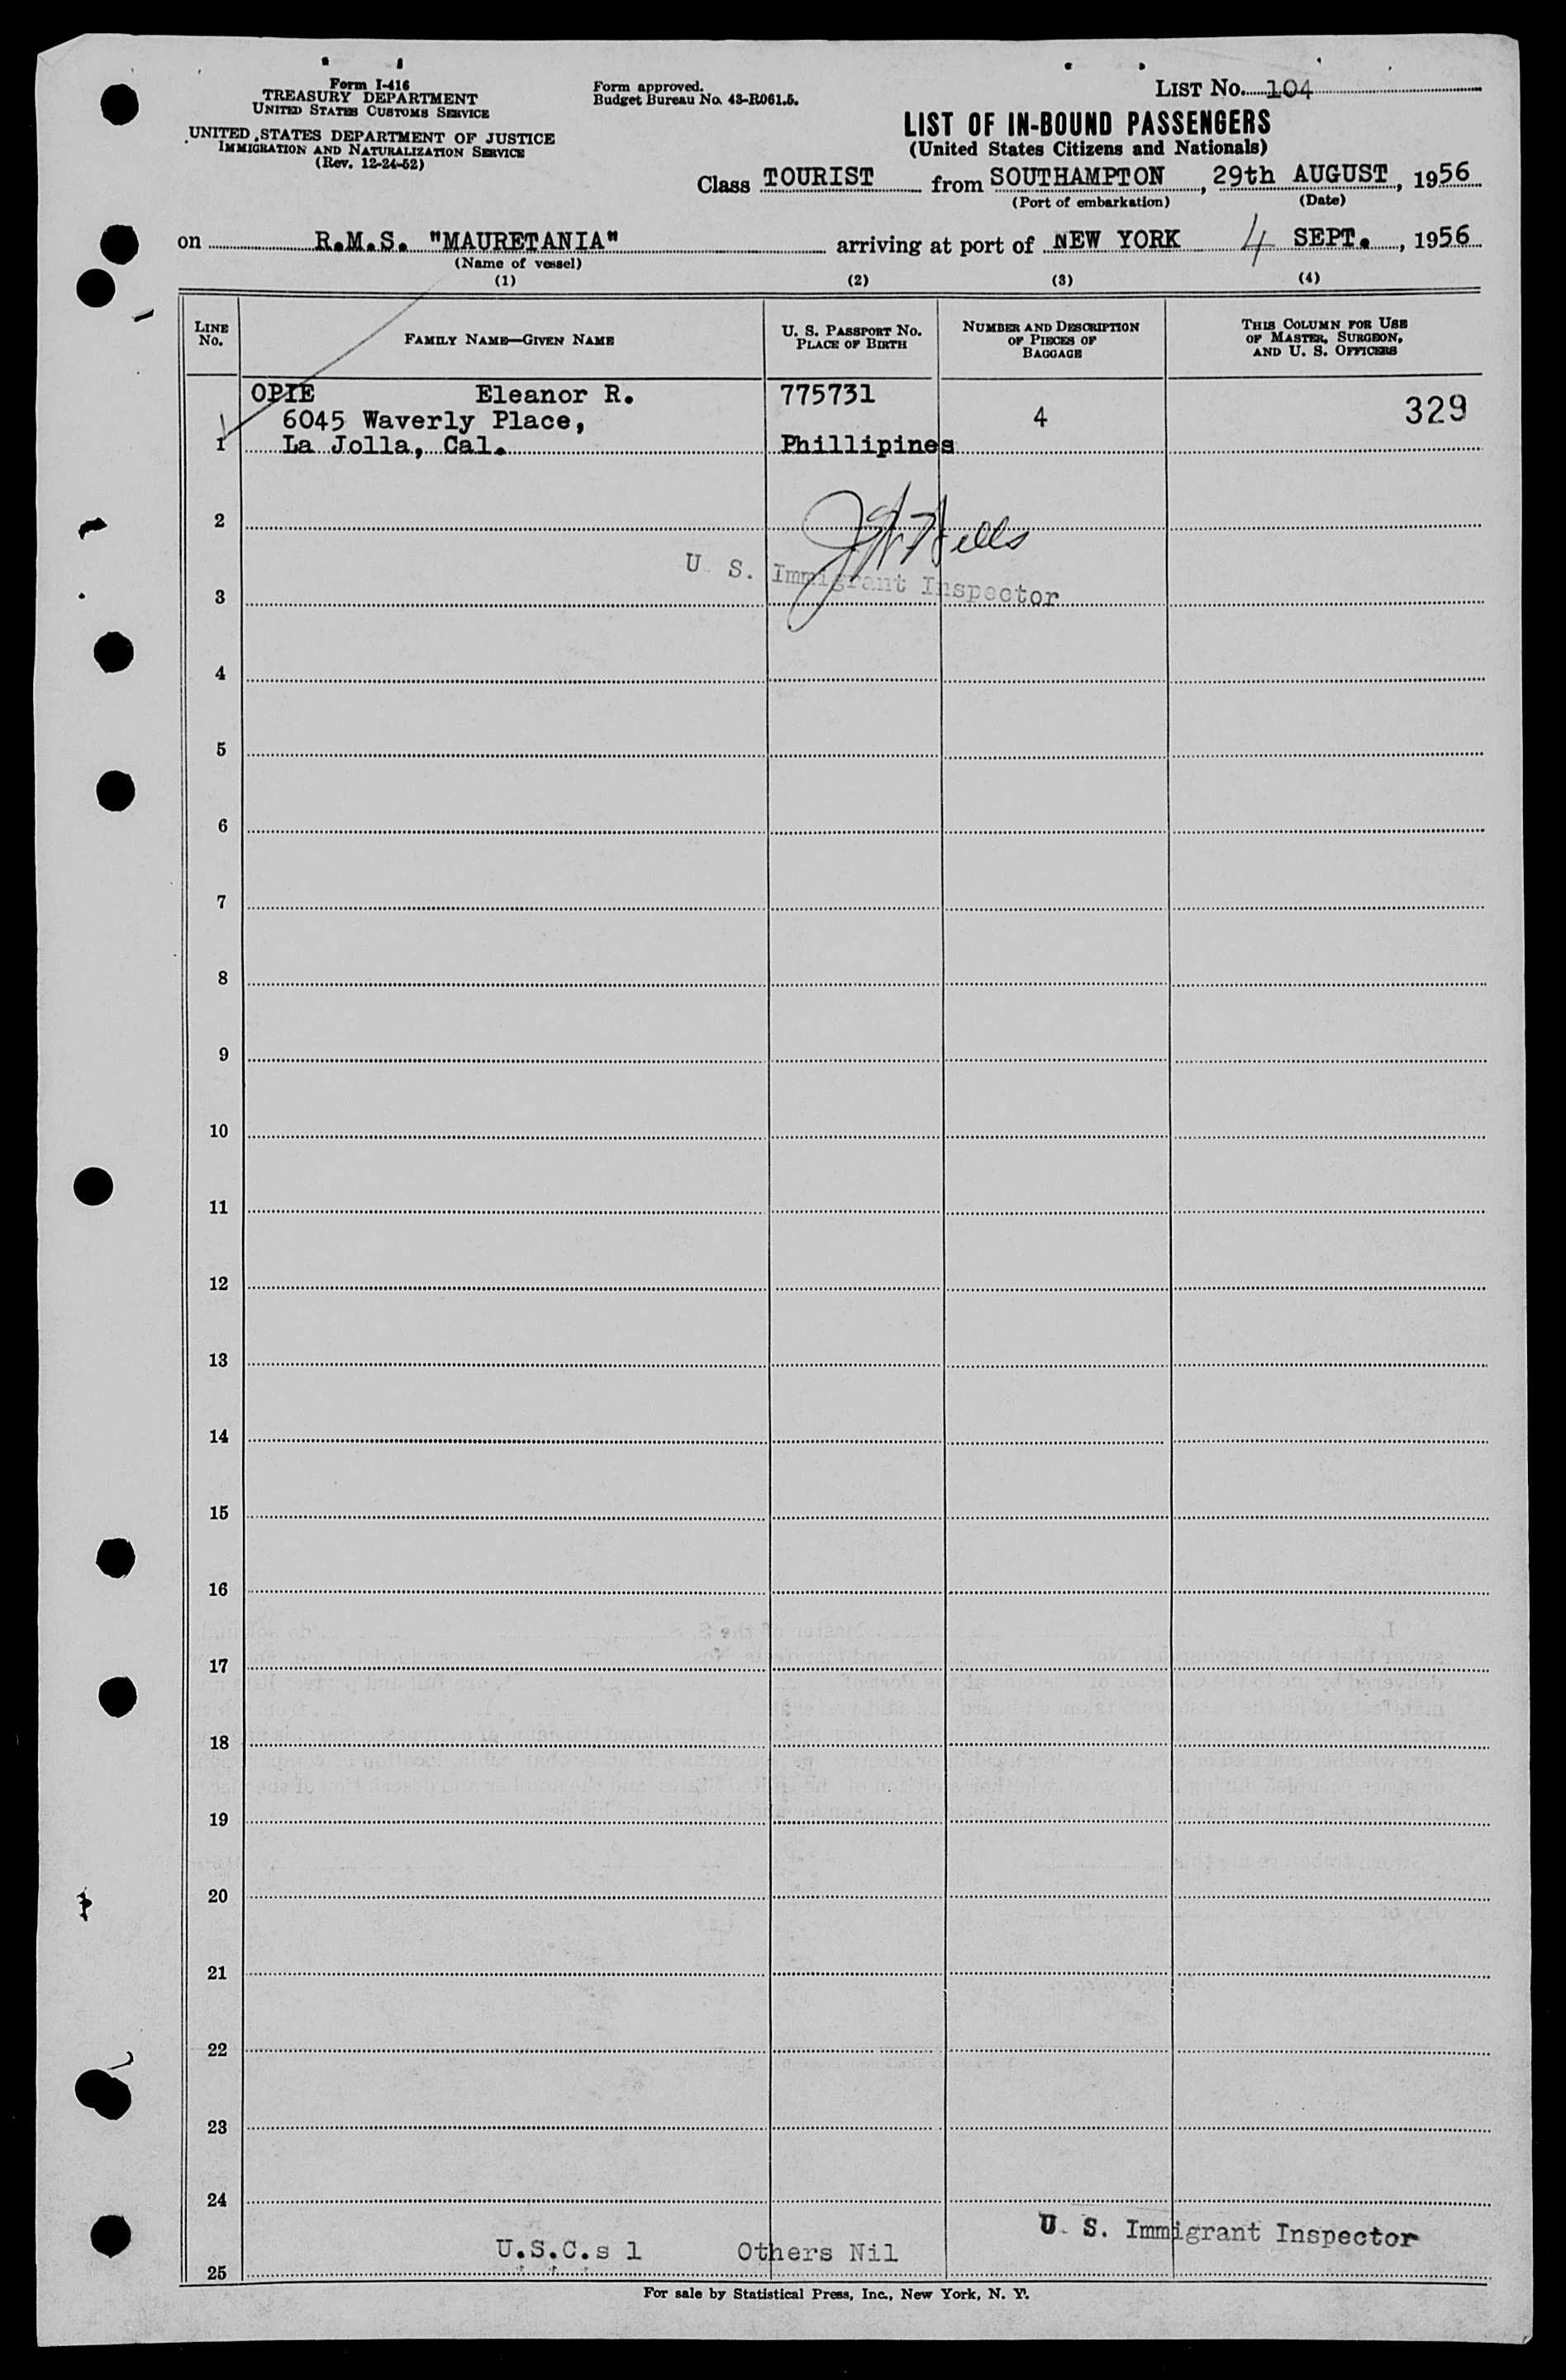 Form I-416
TREASURY DEPARTMENT
UNITED STATES CUSTOMS SERVICE
UNITED STATES DEPARTMENT OF JUSTICE
IMMIGRATION AND NATURALIZATION SERVICE
(Rev. 12-24-52)
Form approved.
Budget Bureau No. 43-R061.5.
LIST No. 104
LIST OF IN-BOUND PASSENGERS
(United States Citizens and Nationals)
Class TOURIST from SOUTHAMPTON, 29th AUGUST, 1956
(Port of embarkation) (Date)
on R.M.S. "MAURETANIA" arriving at port of NEW YORK 4 SEPT., 1956
(Name of vessel)
(1) (2) (3) (4)
LINE No.
FAMILY NAME—GIVEN NAME
U. S. PASSPORT NO.
PLACE OF BIRTH
NUMBER AND DESCRIPTION
OF PIECES OF
BAGGAGE
THIS COLUMN FOR USE
OF MASTER, SURGEON,
AND U. S. OFFICERS
OPIE Eleanor R. 775731
6045 Waverly Place, 4 329
1 La Jolla, Cal. Phillipines
2
U. S. Immigrant Inspector
3
4
5
6
7
8
9
10
11
12
13
14
15
16
17
18
19
20
21
22
23
24
U. S. Immigrant Inspector
U.S.C.s 1 Others Nil
25
For sale by Statistical Press, Inc., New York, N. Y.